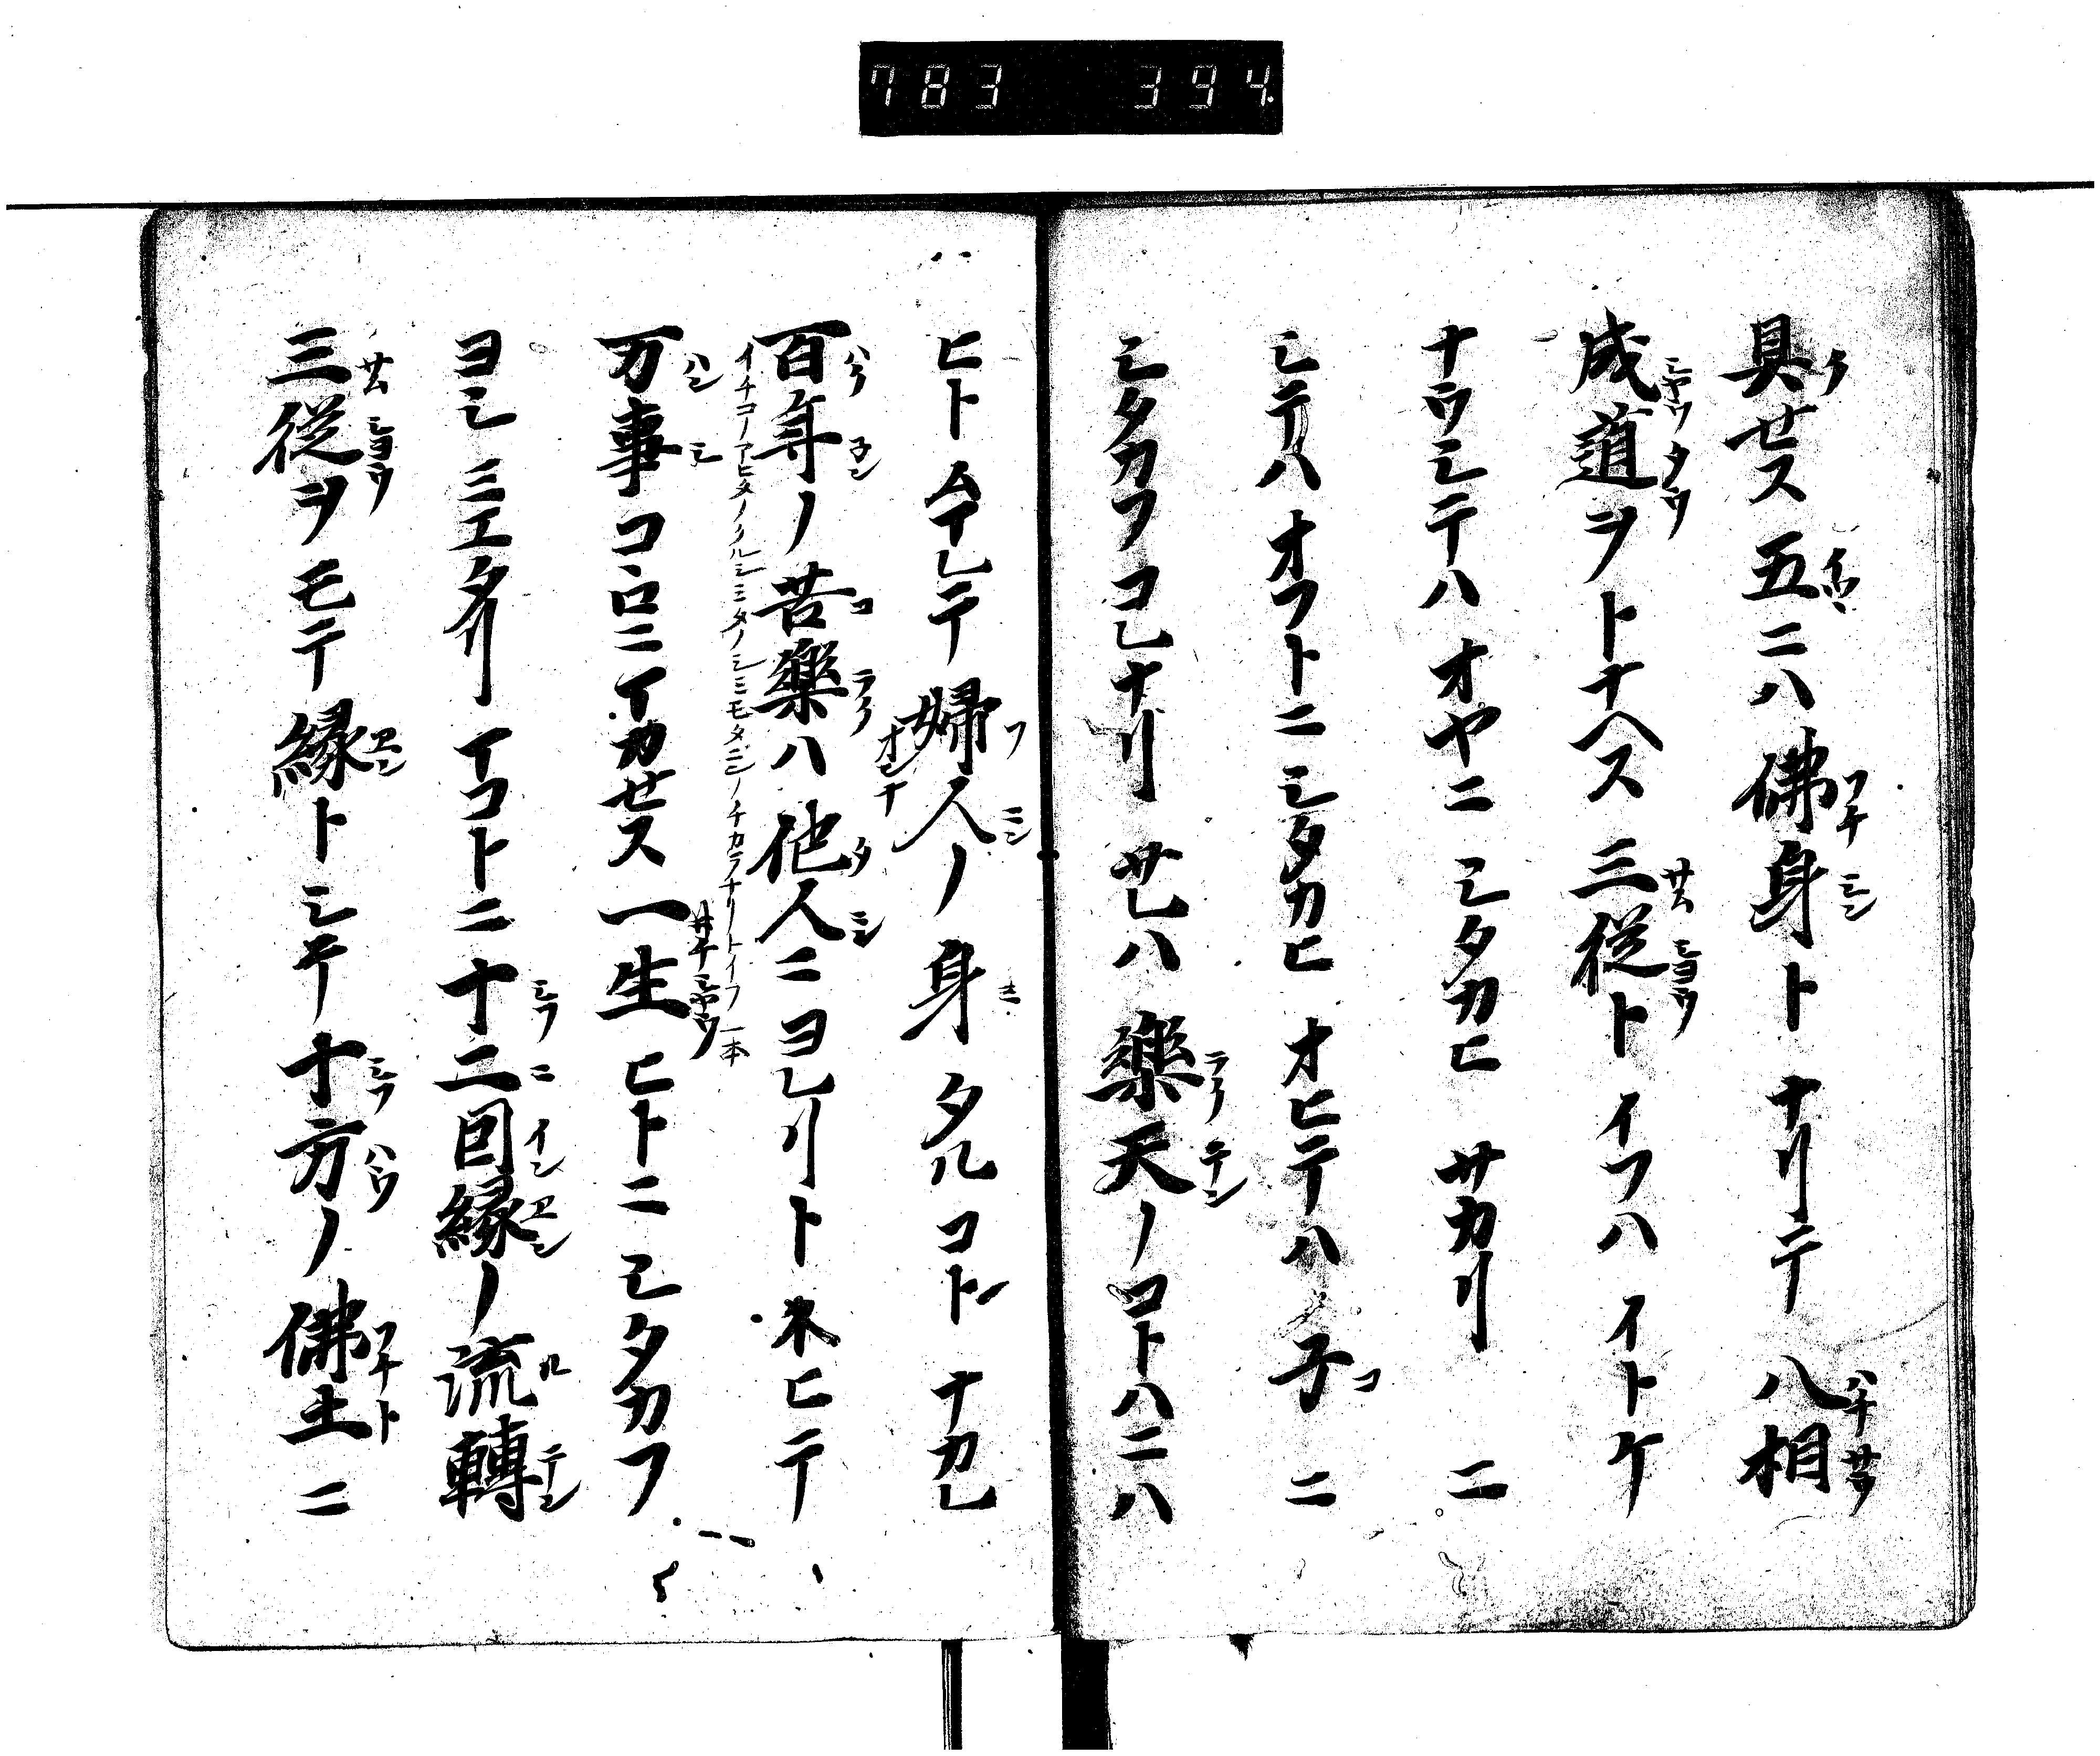 783 394
具セス五ニハ佛身トナリテ八相
成道ヲトナヘス三従トイフハイトケ
ナウシテハオヤニシタカヒサカリニ
シテハオフトニシタカヒオヒテハ子ニ
シタカフコレナリサレハ樂天ノコトハニハ
ヒトムマレテ婦人ノ身タルコトナカレ
百年ノ苦樂ハ他人ニヨレリトネヒテ
イチコノアヒタノクルシミタノシミモタニンノチカラナリトイフ一本
万事コヽロニイカセス一生ヒトニシタカフ
ヨシミエタリイコトニ十二因縁ノ流轉
三従ヲモテ縁トシテ十方ノ佛土ニ